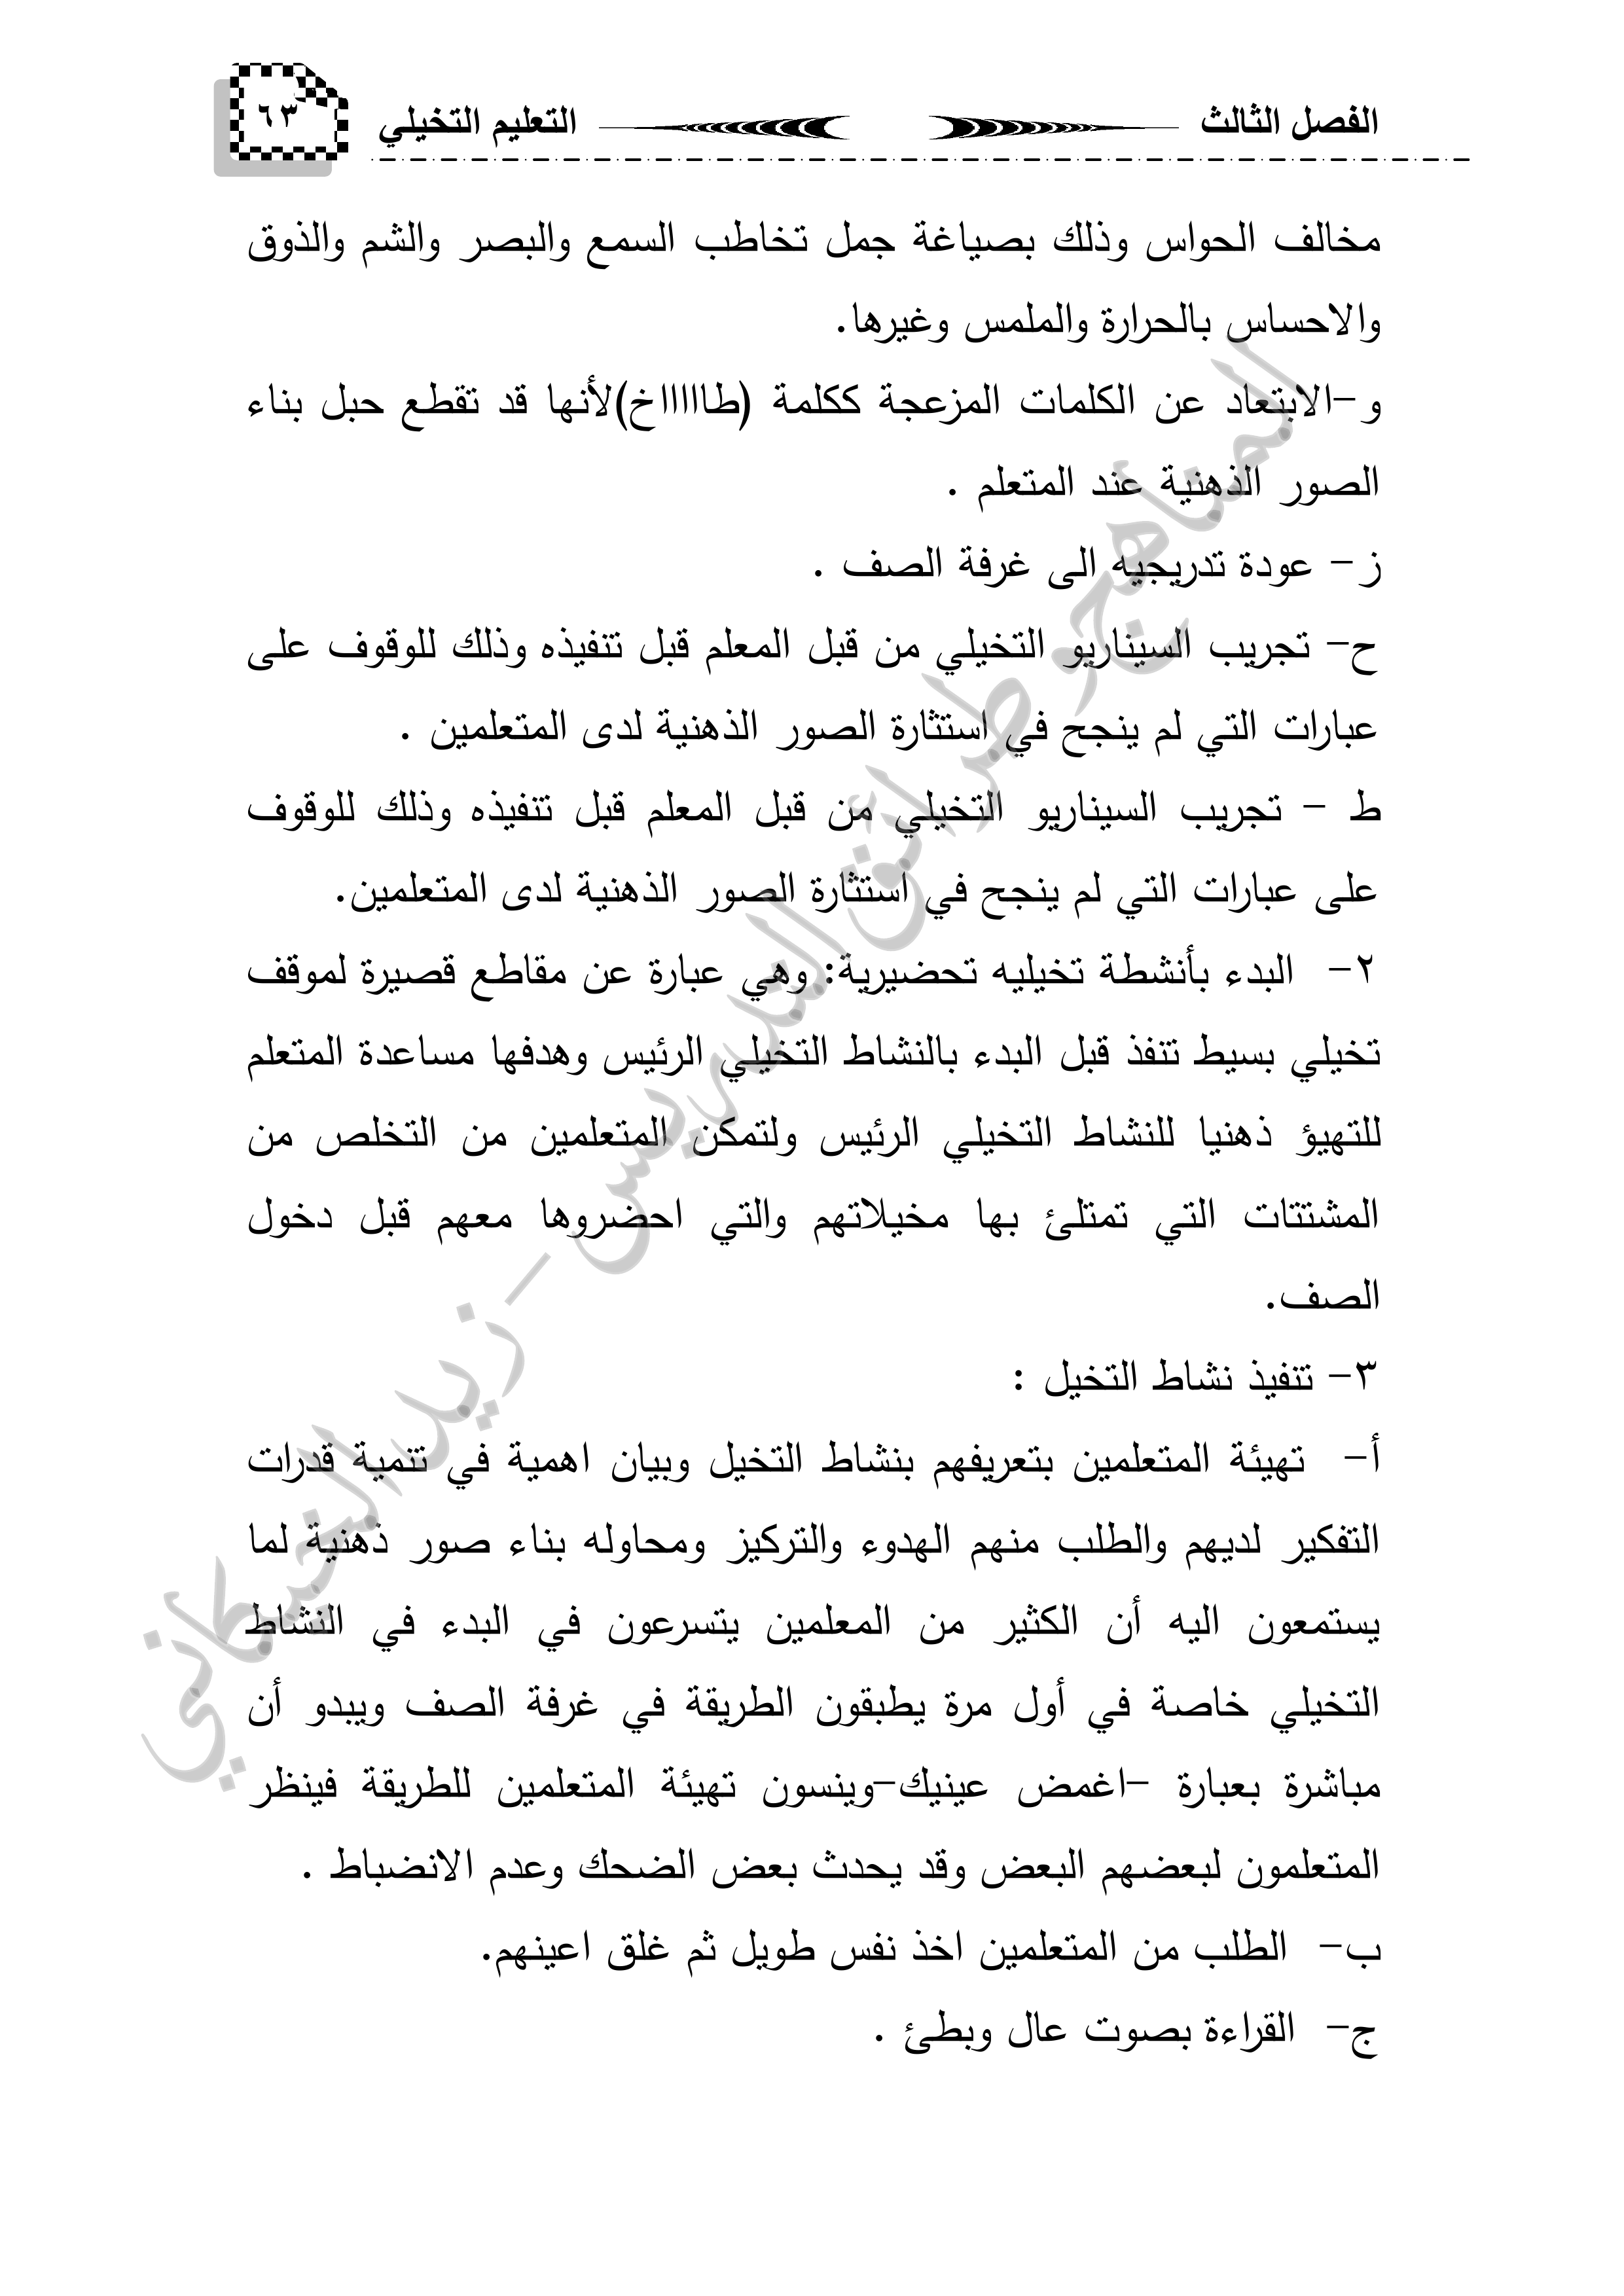 الفصل الثالث التعليم التخيلي ٦٣
مخالف الحواس وذلك بصياغة جمل تخاطب السمع والبصر والشم والذوق
والاحساس بالحرارة والملمس وغيرها.
و-الابتعاد عن الكلمات المزعجة ككلمة (طااااااخ)لأنها قد تقطع حبل بناء
الصور الذهنية عند المتعلم .
ز- عودة تدريجيه الى غرفة الصف .
ح- تجريب السيناريو التخيلي من قبل المعلم قبل تنفيذه وذلك للوقوف على
عبارات التي لم ينجح في استثارة الصور الذهنية لدى المتعلمين .
ط - تجريب السيناريو التخيلي من قبل المعلم قبل تنفيذه وذلك للوقوف
على عبارات التي لم ينجح في استثارة الصور الذهنية لدى المتعلمين.
٢- البدء بأنشطة تخيليه تحضيرية: وهي عبارة عن مقاطع قصيرة لموقف
تخيلي بسيط تنفذ قبل البدء بالنشاط التخيلي الرئيس وهدفها مساعدة المتعلم
للتهيؤ ذهنيا للنشاط التخيلي الرئيس ولتمكن المتعلمين من التخلص من
المشتتات التي تمتلئ بها مخيلاتهم والتي احضروها معهم قبل دخول
الصف.
٣- تنفيذ نشاط التخيل :
أ- تهيئة المتعلمين بتعريفهم بنشاط التخيل وبيان اهمية في تنمية قدرات
التفكير لديهم والطلب منهم الهدوء والتركيز ومحاوله بناء صور ذهنية لما
يستمعون اليه أن الكثير من المعلمين يتسرعون في البدء في النشاط
التخيلي خاصة في أول مرة يطبقون الطريقة في غرفة الصف ويبدو أن
مباشرة بعبارة -اغمض عينيك-وينسون تهيئة المتعلمين للطريقة فينظر
المتعلمون لبعضهم البعض وقد يحدث بعض الضحك وعدم الانضباط .
ب- الطلب من المتعلمين اخذ نفس طويل ثم غلق اعينهم.
ج- القراءة بصوت عال وبطئ .
المناهج وطرائق التدريس - زيد الخيكاني